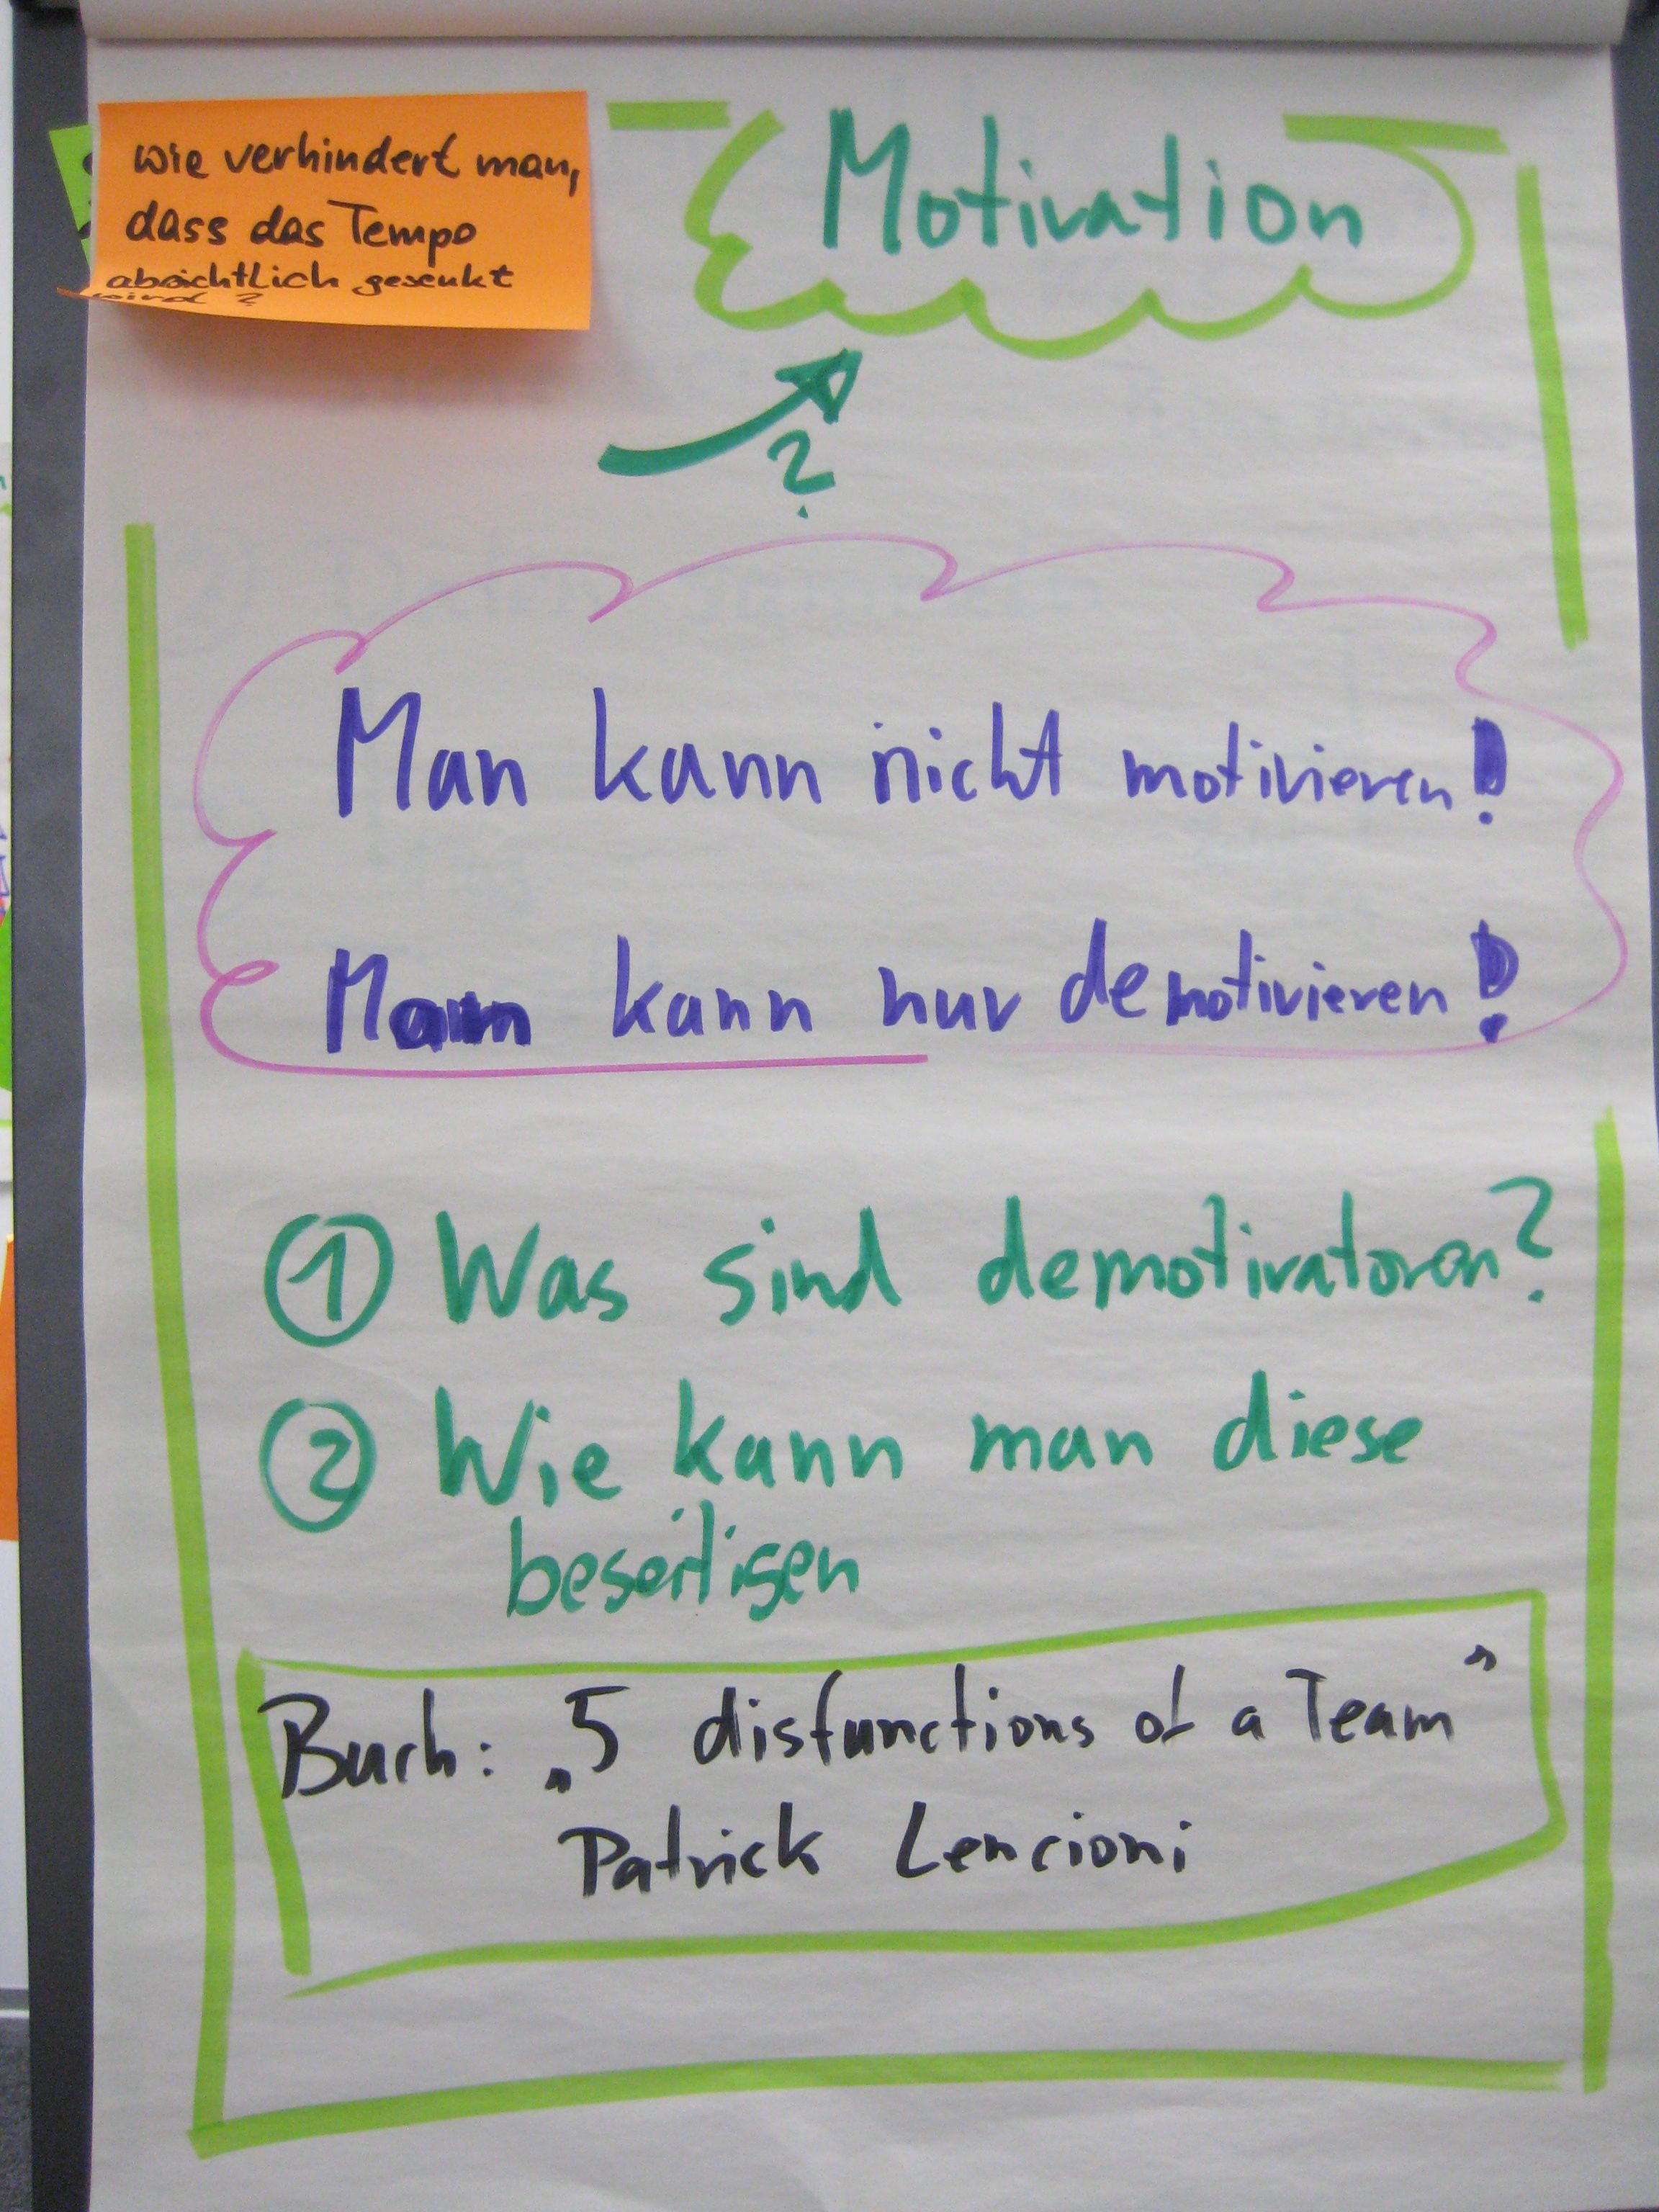 wie verhindert man,
dass das Tempo
absichtlich gesenkt
wird ?
Motivation
?
Man kann nicht motivieren!
Man kann nur demotivieren!
1 Was sind demotivatoren?
2 Wie kann man diese
beseitigen
Buch: „5 disfunctions of a Team"
Patrick Lencioni